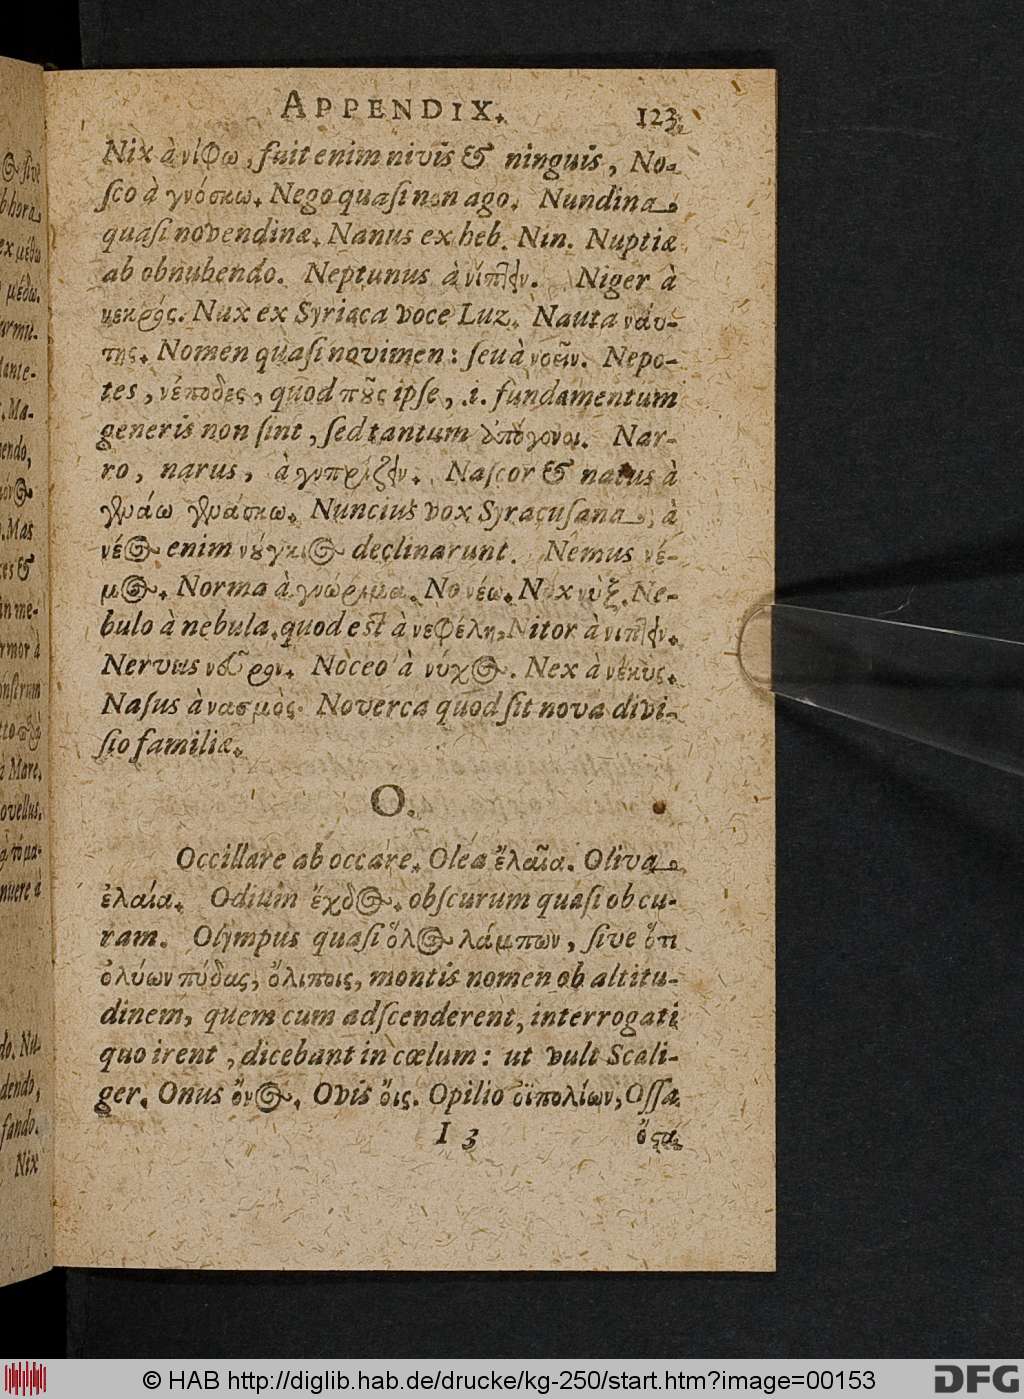 APPENDIX. 123
Nix à νίφω, fuit enim nivis & ninguis, No-
ſco à γνόσκω. Nego quaſi non ago. Nundina
quaſi novendinæ. Nanus ex heb. Nin. Nuptiæ
ab obnubendo. Neptunus à νίπτειν. Niger à
νεκρός. Nux ex Syriaca voce Luz. Nauta ναύ-
της. Nomen quaſi novimen: ſeu à νοεῖν. Nepo-
tes, νέποδες, quod πȣ͂ς ipſe, .i. fundamentum
generis non ſint, ſed tantum ἀπόγονοι. Nar-
ro, narus, à γνπρίζειν. Naſcor & natus à
γενάω γενάσκω. Nuncius vox Syracuſana, à
νέος enim νȣ́γκιος declinarunt. Nemus νέ-
μος. Norma à γνώριμα. No νέω. Nox νὺξ. Ne-
bulo à nebula, quod eſt à νεφέλη, Nitor à νιπτειν.
Nervus νεῦρον. Noceo à νύχος. Nex à νέκυς.
Naſus à νασμὸς. Noverca quod ſit nova divi-
ſio familiæ.
O.
Occillare ab occare. Olea ἔλαῖα. Oliva
ἐλαία. Odium ἔχδος. obſcurum quaſi ob cu-
ram. Olympus quaſi ὅλος λάμπων, ſive ὅτι
ὀλύων πύδας, ὄλιποις, montis nomen ob altitu-
dinem, quem cum adſcenderent, interrogati
quo irent, dicebant in cœlum: ut vult Scali-
ger. Onus ὄνος. Ovis ὄις. Opilio ὀϊπολίων, Oſſa
I 3 ὄςα,
ſive
bhora
ex μέθω
μέδω.
Ma-
endo,
Mas
tes &
in me-
rmor à
à Mare,
ovellus,
nuere à
do. Nu-
dendo,
fando.
Nix
© HAB http://diglib.hab.de/drucke/kg-250/start.htm?image=00153
DFG